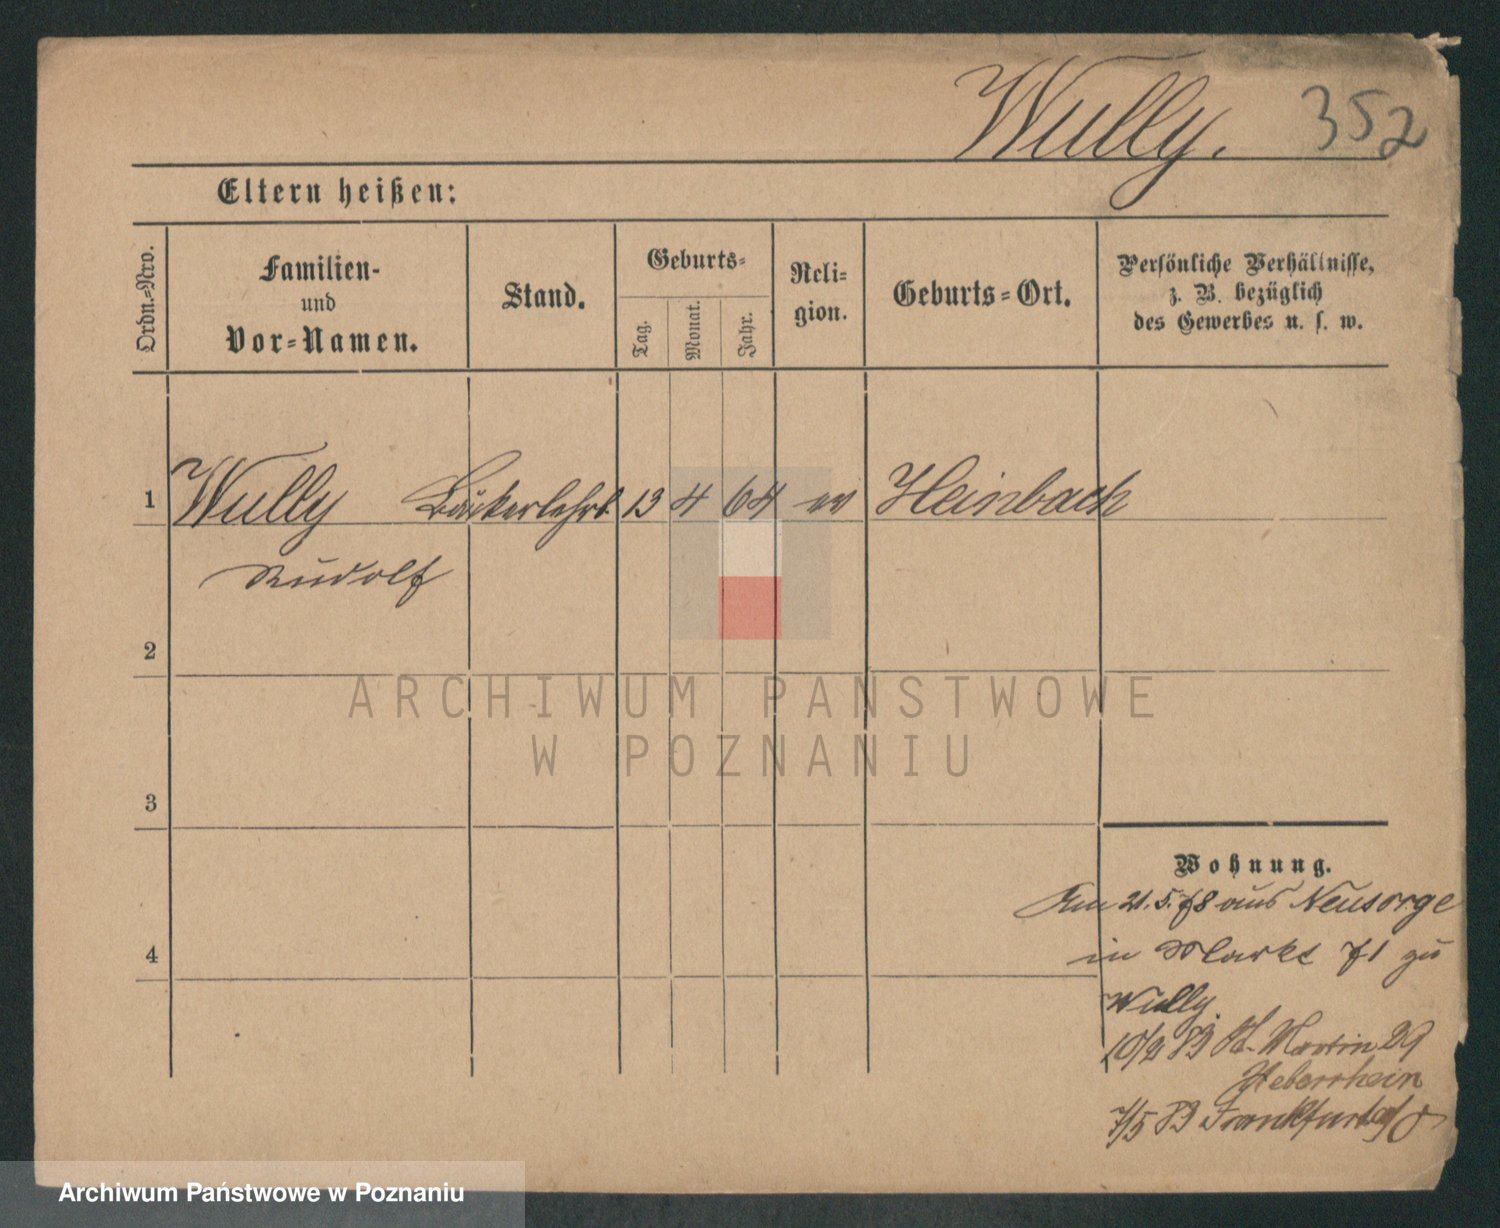 Wully. 352
Eltern heißen:
Ordn.=Nro.
Familien-
und
Vor=Namen.
Stand.
Geburts=
Tag.
Monat.
Jahr.
Reli-
gion.
Geburts=Ort.
Persönliche Verhältnisse,
z. B. bezüglich
des Gewerbes u. s. w.
1 Wully Bäckerlehrl. 13 4 64 ev Heinbach
Rudolf
2
3
4
ARCHIWUM PAŃSTWOWE
W POZNANIU
Wohnung.
Am 21.5.78 aus Neusorge
in Markt 71 zu
Wully.
St. Martin 29
Heberrhein
7/5 Frankfurt a/O
Archiwum Państwowe w Poznaniu